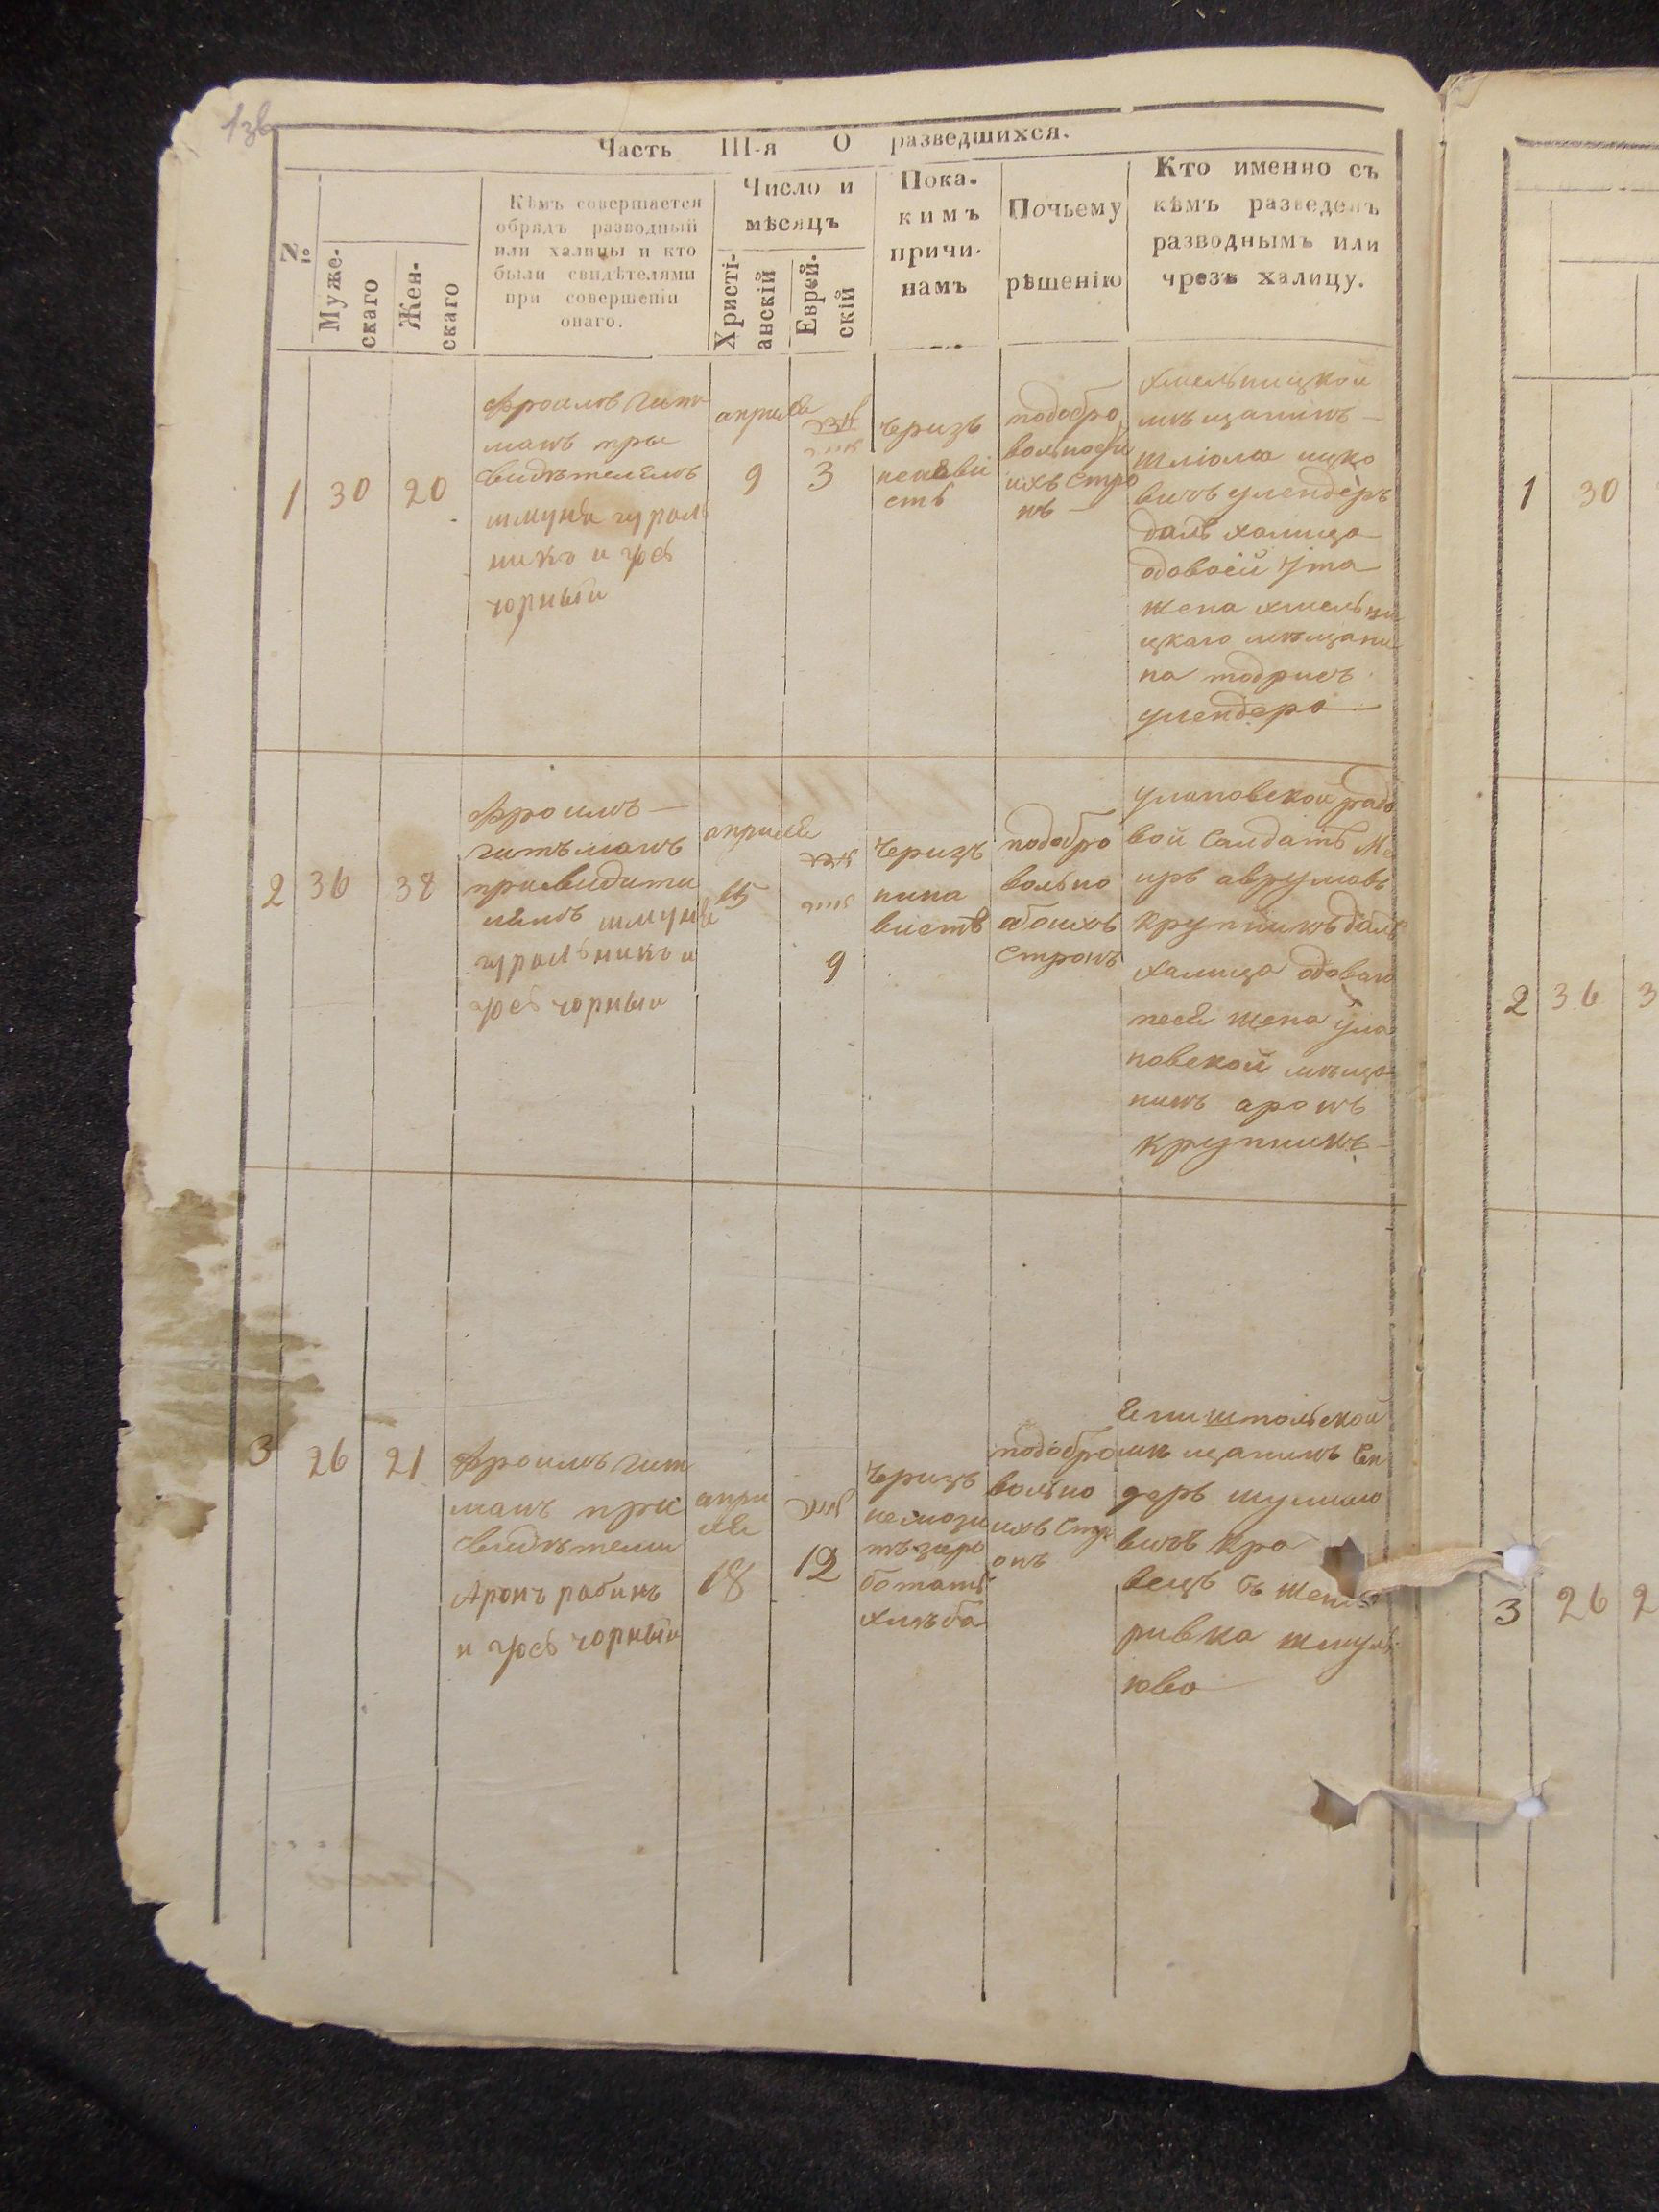 1зв
Часть III-я О разведшихся.
№
Муже-
скаго
Жен-
скаго
Кѣмъ совершается
обрядъ разводный
или халицы и кто
были свидѣтелями
при совершеніи
онаго.
Число и
мѣсяцъ
Христі-
анскій
Еврей-
скій
Пока-
кимъ
причи-
намъ
Почьему
рѣшенію
Кто именно съ
кѣмъ разведенъ
разводнымъ или
чрезъ халицу.
1
30
20
Фроимъ Гит
манъ пры
свидѣтелемъ
шмуня гураль
никъ и Іосъ
чорный
апреля
9
3
черизъ
ненави
сть
подобро
вольности
ихъ стро
нъ
хмельницкой
мѣщанинъ
ицко
вичъ улендеръ
далъ халица
вдовоей Ута
жена хмельни
цкаго мѣщани
на
улендера
2
36
38
Фроимъ
гитъманъ
присвидити
лямъ шмуня
гуральникъ и
Іосъ чорный
апреля
15
9
черизъ
нина
висть
подобро
вольно
абоихъ
стронъ
улановской рядо
вой салдатъ Ме
иръ аврумовъ
крупникъ далъ
халица вдоваю
песя жена ула
новской мѣща
нинъ аронъ
крупникъ
3
26
21
Фроимъ гит
манъ при
свидѣтели
Аронъ рабинъ
и Іосъ чорный
апри
ля
18
12
черизъ
немози
тъ заро
ботать
хлѣба
подобро
вольно
ихъ стр
онъ
мѣщанинъ Сен
деръ шулимо
вичъ кра
вецъ съ жена
ривка шмуль
ова
1
30
2
36
3
3
26
2